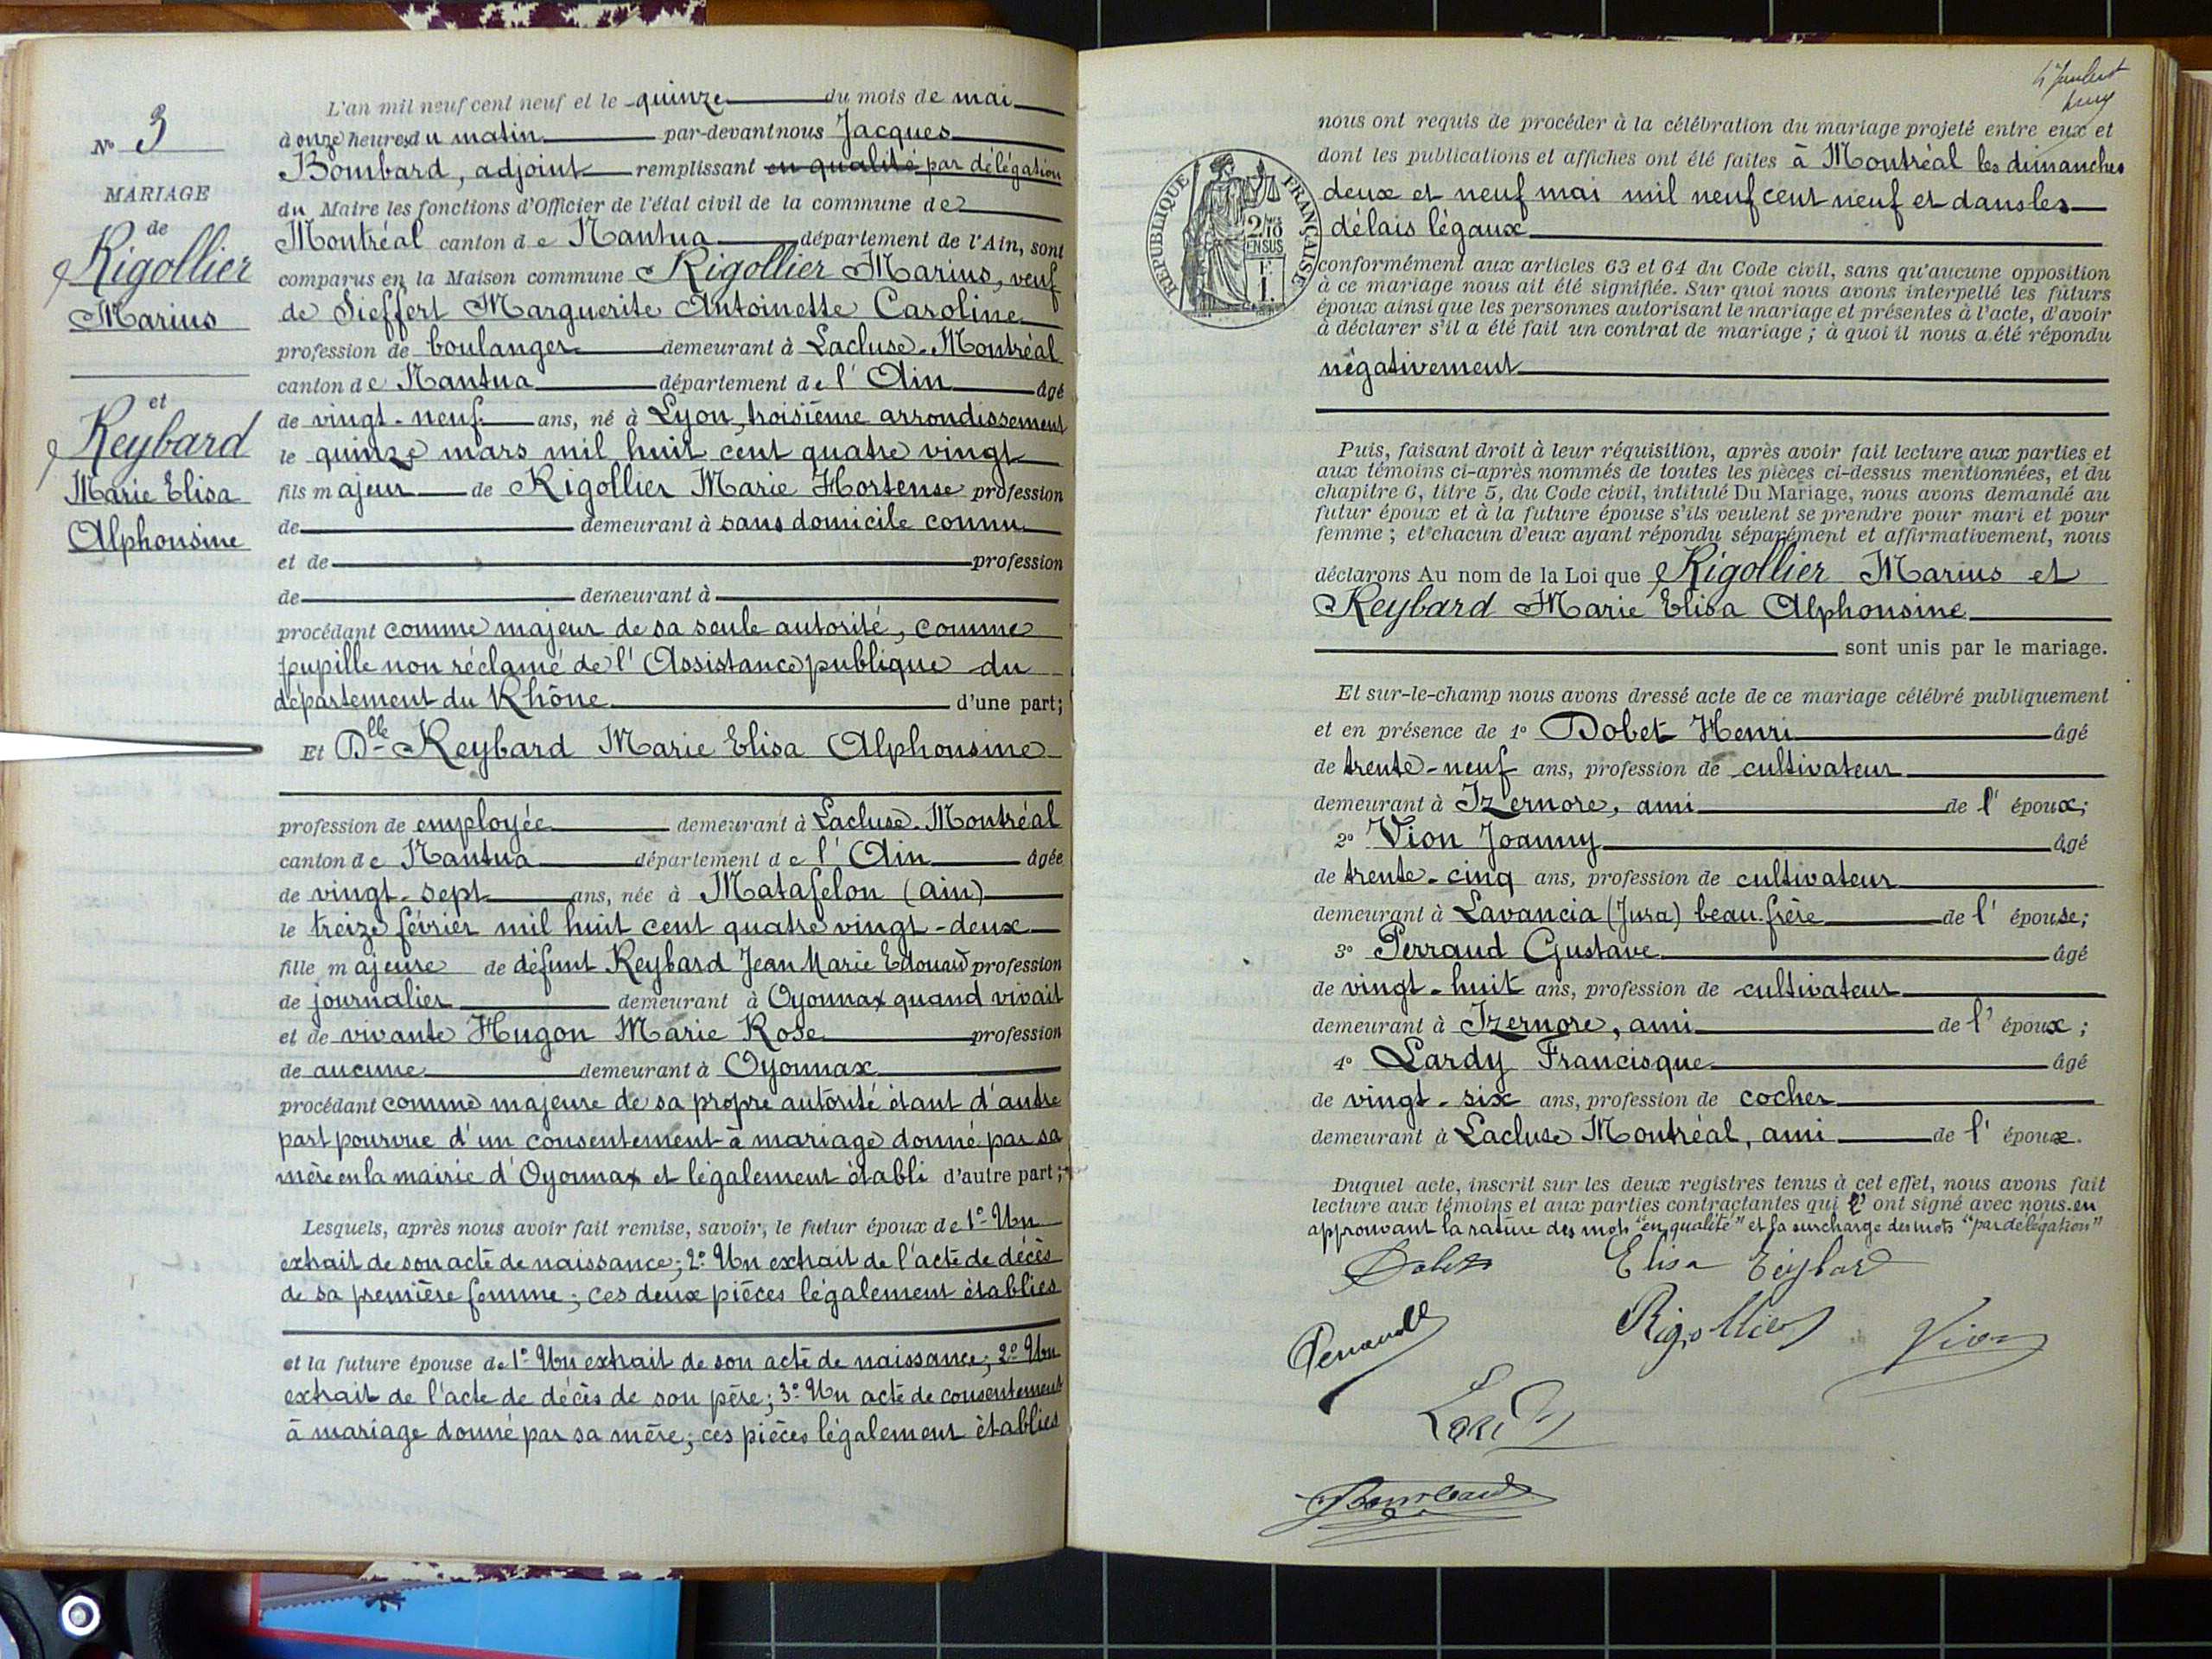 N° 3
MARIAGE
de
Rigollier
Marius
et
Reybard
Marie Elisa
Alphonsine
L'an mil neuf cent neuf et le quinze du mois de mai
à onze heures du matin par-devant nous Jacques
Bombard, adjoint remplissant en qualité par délégation
du Maire les fonctions d'Officier de l'état civil de la commune de
Montréal canton de Nantua département de l'Ain, sont
comparus en la Maison commune Rigollier Marius, veuf
de Sieffert Marguerite Antoinette Caroline
profession de boulanger demeurant à Lacluse-Montréal
canton de Nantua département de l'Ain âgé
de vingt-neuf ans, né à Lyon, troisième arrondissement
le quinze mars mil huit cent quatre vingt
fils majeur de Rigollier Marie Hortense profession
de demeurant à sans domicile connu
et de profession
de demeurant à
procédant comme majeur de sa seule autorité, comme
pupille non réclamé de l'Assistance publique du
département du Rhône d'une part;
Et Dlle Reybard Marie Elisa Alphonsine
profession de employée demeurant à Lacluse-Montréal
canton de Nantua département de l'Ain âgée
de vingt-sept ans, née à Matafelon (Ain)
le treize février mil huit cent quatre vingt-deux
fille majeure de défunt Reybard Jean Marie Edouard profession
de journalier demeurant à Oyonnax quand vivait
et de vivante Hugon Marie Rose profession
de aucune demeurant à Oyonnax
procédant comme majeure de sa propre autorité étant d'autre
part pourvue d'un consentement à mariage donné par sa
mère en la mairie d'Oyonnax et légalement établi d'autre part;
Lesquels, après nous avoir fait remise, savoir, le futur époux de 1° Un
extrait de son acte de naissance; 2° Un extrait de l'acte de décès
de sa première femme; ces deux pièces légalement établies
et la future épouse de 1° Un extrait de son acte de naissance; 2° Un
extrait de l'acte de décès de son père; 3° Un acte de consentement
à mariage donné par sa mère; ces pièces légalement établies
nous ont requis de procéder à la célébration du mariage projeté entre eux et
dont les publications et affiches ont été faites à Montréal les dimanches
deux et neuf mai mil neuf cent neuf et dans les
délais légaux
REPUBLIQUE FRANÇAISE
2/10
EN SUS
conformément aux articles 63 et 64 du Code civil, sans qu'aucune opposition
à ce mariage nous ait été signifiée. Sur quoi nous avons interpellé les futurs
époux ainsi que les personnes autorisant le mariage et présentes à l'acte, d'avoir
à déclarer s'il a été fait un contrat de mariage; à quoi il nous a été répondu
négativement
Puis, faisant droit à leur réquisition, après avoir fait lecture aux parties et
aux témoins ci-après nommés de toutes les pièces ci-dessus mentionnées, et du
chapitre 6, titre 5, du Code civil, intitulé Du Mariage, nous avons demandé au
futur époux et à la future épouse s'ils veulent se prendre pour mari et pour
femme; et chacun d'eux ayant répondu séparément et affirmativement, nous
déclarons Au nom de la Loi que Rigollier Marius et
Reybard Marie Elisa Alphonsine
sont unis par le mariage.
Et sur-le-champ nous avons dressé acte de ce mariage célébré publiquement
et en présence de 1° Dobet Henri âgé
de trente-neuf ans, profession de cultivateur
demeurant à Izernore, ami de l'époux;
2° Vion Joanny âgé
de trente-cinq ans, profession de cultivateur
demeurant à Lavancia (Jura) beau-frère de l'épouse;
3° Perraud Gustave âgé
de vingt-huit ans, profession de cultivateur
demeurant à Izernore, ami de l'époux;
4° Lardy Francisque âgé
de vingt-six ans, profession de cocher
demeurant à Lacluse Montréal, ami de l'époux.
Duquel acte, inscrit sur les deux registres tenus à cet effet, nous avons fait
lecture aux témoins et aux parties contractantes qui l'ont signé avec nous en
approuvant la rature des mots "en qualité" et la surcharge des mots "par délégation"
Dobet
Elisa Reybard
Rigollier
Vion
Lardy
Bombard